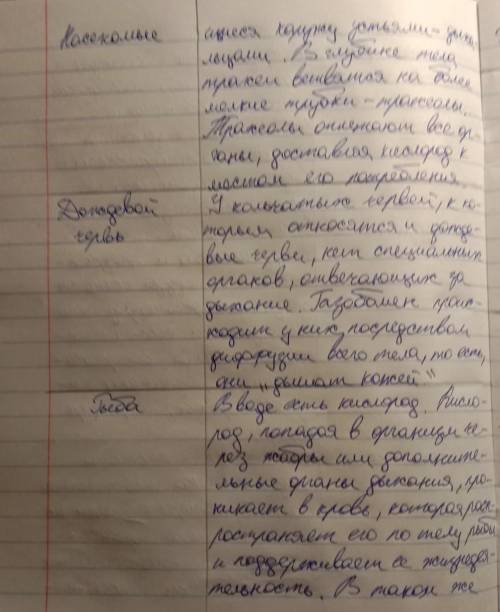 Насекомые
щиеся наружу устьями - дыха-
льцами. В глубине тела
трахеи ветвятся на более
мелкие трубки - трахеолы.
Трахеолы оплетают все ор-
ганы, доставляя кислород к
местам его потребления.
Дождевой
червь
У кольчатых червей, к ко-
торым относятся и дожде-
вые черви, нет специальных
органов, отвечающих за
дыхание. Газообмен проис-
ходит у них посредством
диффузии всего тела, то есть,
они "дышат кожей"
Рыба
В воде есть кислород. Кисло-
род, попадая в организм че-
рез жабры или дополните-
льные органы дыхания, про-
никает в кровь, которая рас-
пространяет его по телу рыбы
и поддерживает её жизнедея-
тельность. В таком же